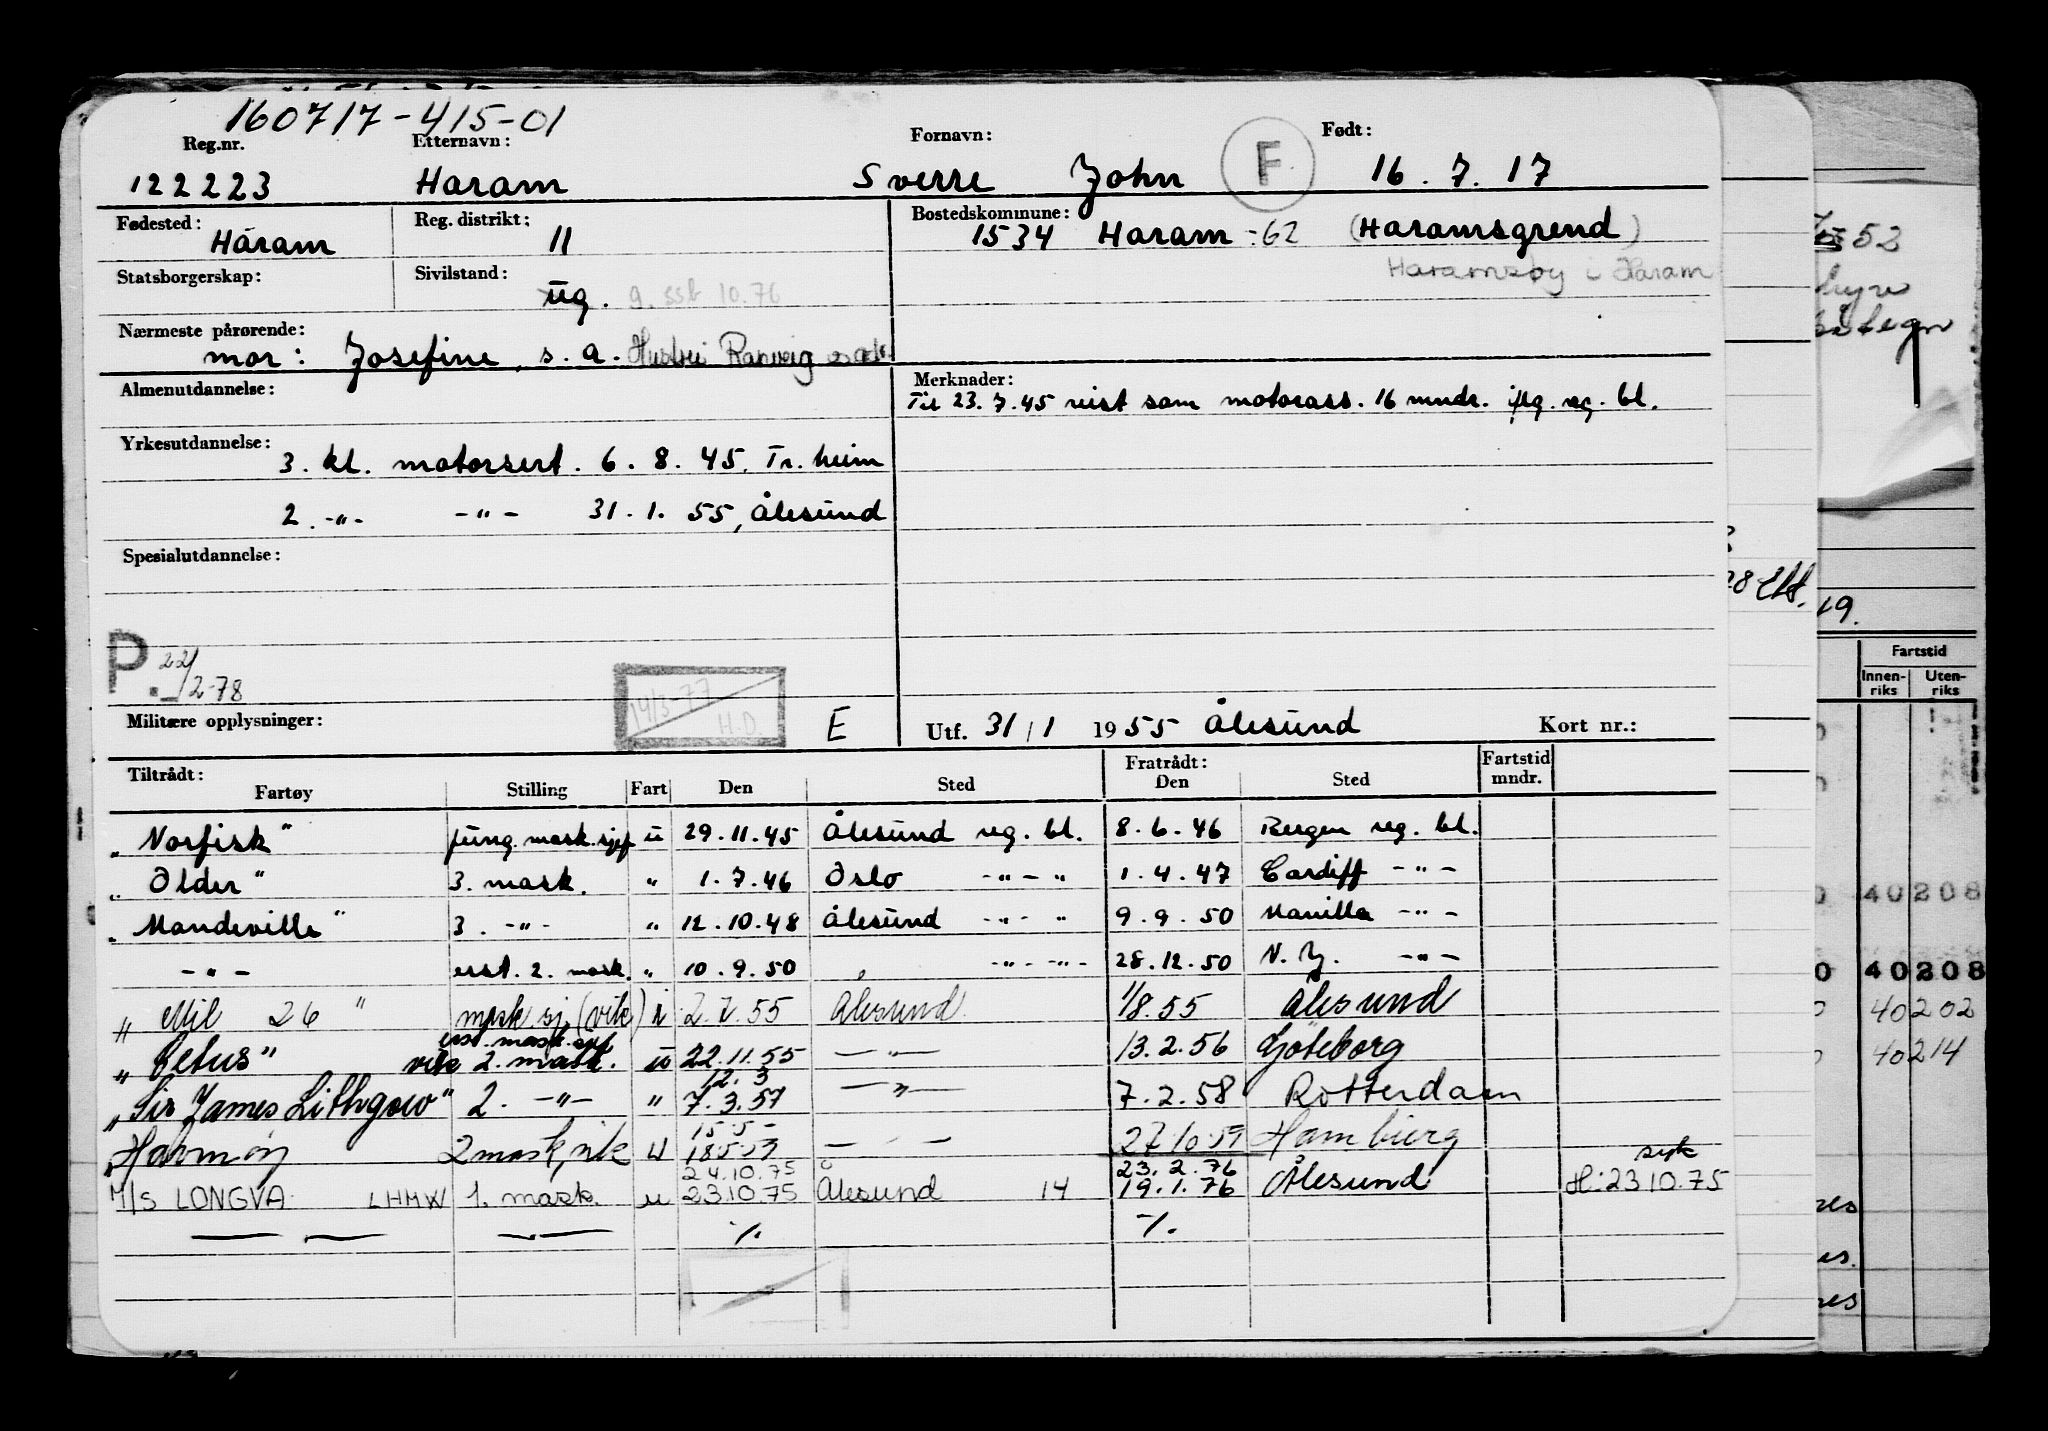 160717-415-01
Reg.nr. Etternavn: Fornavn: F Født:
122223 Haram Sverre John 16.7.17
Fødested: Haram Reg. distrikt: 11 Bostedskommune: 1534 Haram -62 (Haramsgrend)
Haramsøy i Haram
Statsborgerskap: Sivilstand: ug. g. 10.76
Nærmeste pårørende:
mor: Josefine, s.a. Hustru
Almenutdannelse: Merknader:
Til 23.7.45 reist som motorass. 16 mndr. iflg. reg. bl.
Yrkesutdannelse:
3. kl. motorsert. 6.8.45, Tr.heim
2. -"- -"- 31.1.55, Ålesund
Spesialutdannelse:
P. 22/2-78
14/3-77 H.D.
Militære opplysninger: E Utf. 31/1 1955 Ålesund Kort nr.:
Tiltrådt: Fratrådt: Fartstid mndr.
Fartøy Stilling Fart Den Sted Den Sted
"Norfisk" fung. mask.sjef u 29.11.45 Ålesund reg. bl. 8.6.46 Bergen reg. bl.
"Older" 3. mask. " 1.7.46 Oslo -"- " 1.4.47 Cardiff -"-
"Mandeville" 3. -"- " 12.10.48 Ålesund -"- " 9.9.50 Manilla -"-
-"- erst. 2. mask. " 10.9.50 , -"- -"- 28.12.50 N.Y. -"-
"Mil 26" mask.sj. (vik) i 2.7.55 Ålesund 1/8.55 Ålesund
erst. mask.sjef
"Cetus" vik 2. mask. u 22.11.55 -"- 13.2.56 Göteborg
12. 3
"Sir James Lithgow" 2. -"- " 7.3.57 -"- 7.2.58 Rotterdam
15-5-
2 mask, vik u 18.5.59 -"- 27.10.59 Hamburg
24.10.75 23.2.76 syk
M/S LONGVA LHMW 1. mask. u 23.10.75 Ålesund 14 19.1.76 Ålesund H: 23.10.75
— — — ./. ./.
52
28
19.
Fartstid
Innen-riks Uten-riks
40208
40208
40202
40214